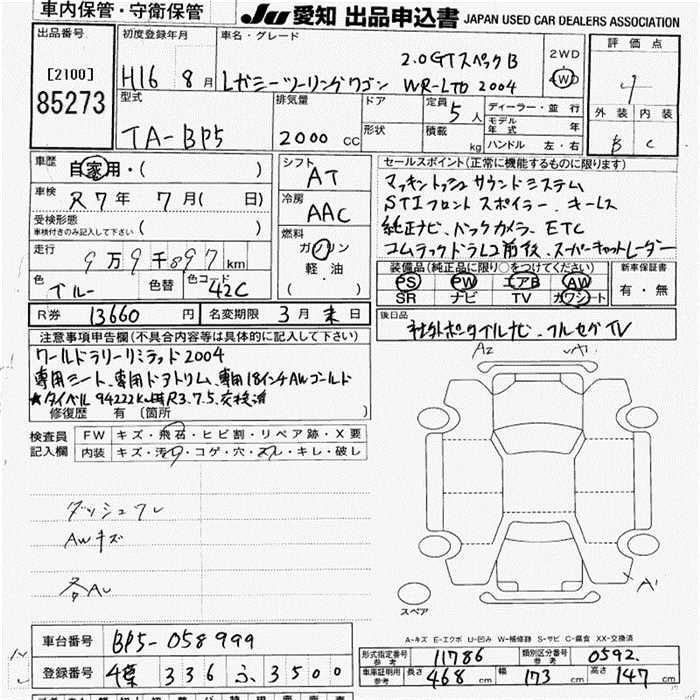 車内保管・守衛保管
JU 愛知 出品申込書 JAPAN USED CAR DEALERS ASSOCIATION
出品番号
[2100]
85273
初度登録年月
H16 8月
車名・グレード
2.0GTスペックB
レガシーツーリングワゴン WR-LTD 2004
2WD
4WD
評価点
4
外装 内装
B C
型式
TA-BP5
排気量
2000 CC
ドア
形状
定員 5人
積載 kg
ディーラー・並行
モデル年式 年
ハンドル 左・右
車歴 自家用・( )
車検 R7年 7月( 日)
受検形態
車検付きのみ記入して下さい ( )
走行 9万9千897km
色 ブルー 色替 色コード 42C
シフト AT
冷房 AAC
燃料 ガソリン
軽・油
セールスポイント(正常に機能するものに限ります)
マッキントッシュサウンドシステム
STIフロントスポイラー、キーレス
純正ナビ、バックカメラ、ETC
コムテックドラレコ前後、スーパーキャットレーダー
装備品(純正品に限り○をつけてください)
PS PW エアB AW
SR ナビ TV カワシート
新車保証書
有・無
R券 13660円 名変期限 3月末日
後日品
社外ポータブルナビ、フルセグTV
注意事項申告欄(不具合内容等は具体的に記入して下さい)
ワールドラリーリミテッド2004
専用シート、専用ドアトリム、専用18インチAWゴールド
★タイベル94222km時R3.7.5.交換済
修復歴 有 〔箇所 〕
検査員記入欄
FW キズ・飛石・ヒビ割・リペア跡・X要
内装 キズ・汚れ・コゲ・穴・スレ・キレ・破し
ダッシュフレ
AWキズ
各AU
A2
A1
A1
スペア
A-キズ E-エクボ U-凹み W-補修跡 S-サビ C-腐食 XX-交換済
車台番号 BP5-058999
登録番号 336 ふ 3500
形式指定番号 参考 11786 類別区分番号 参考 0592
車庫証明用 参考 長さ 468cm 幅 173cm 高さ 147cm